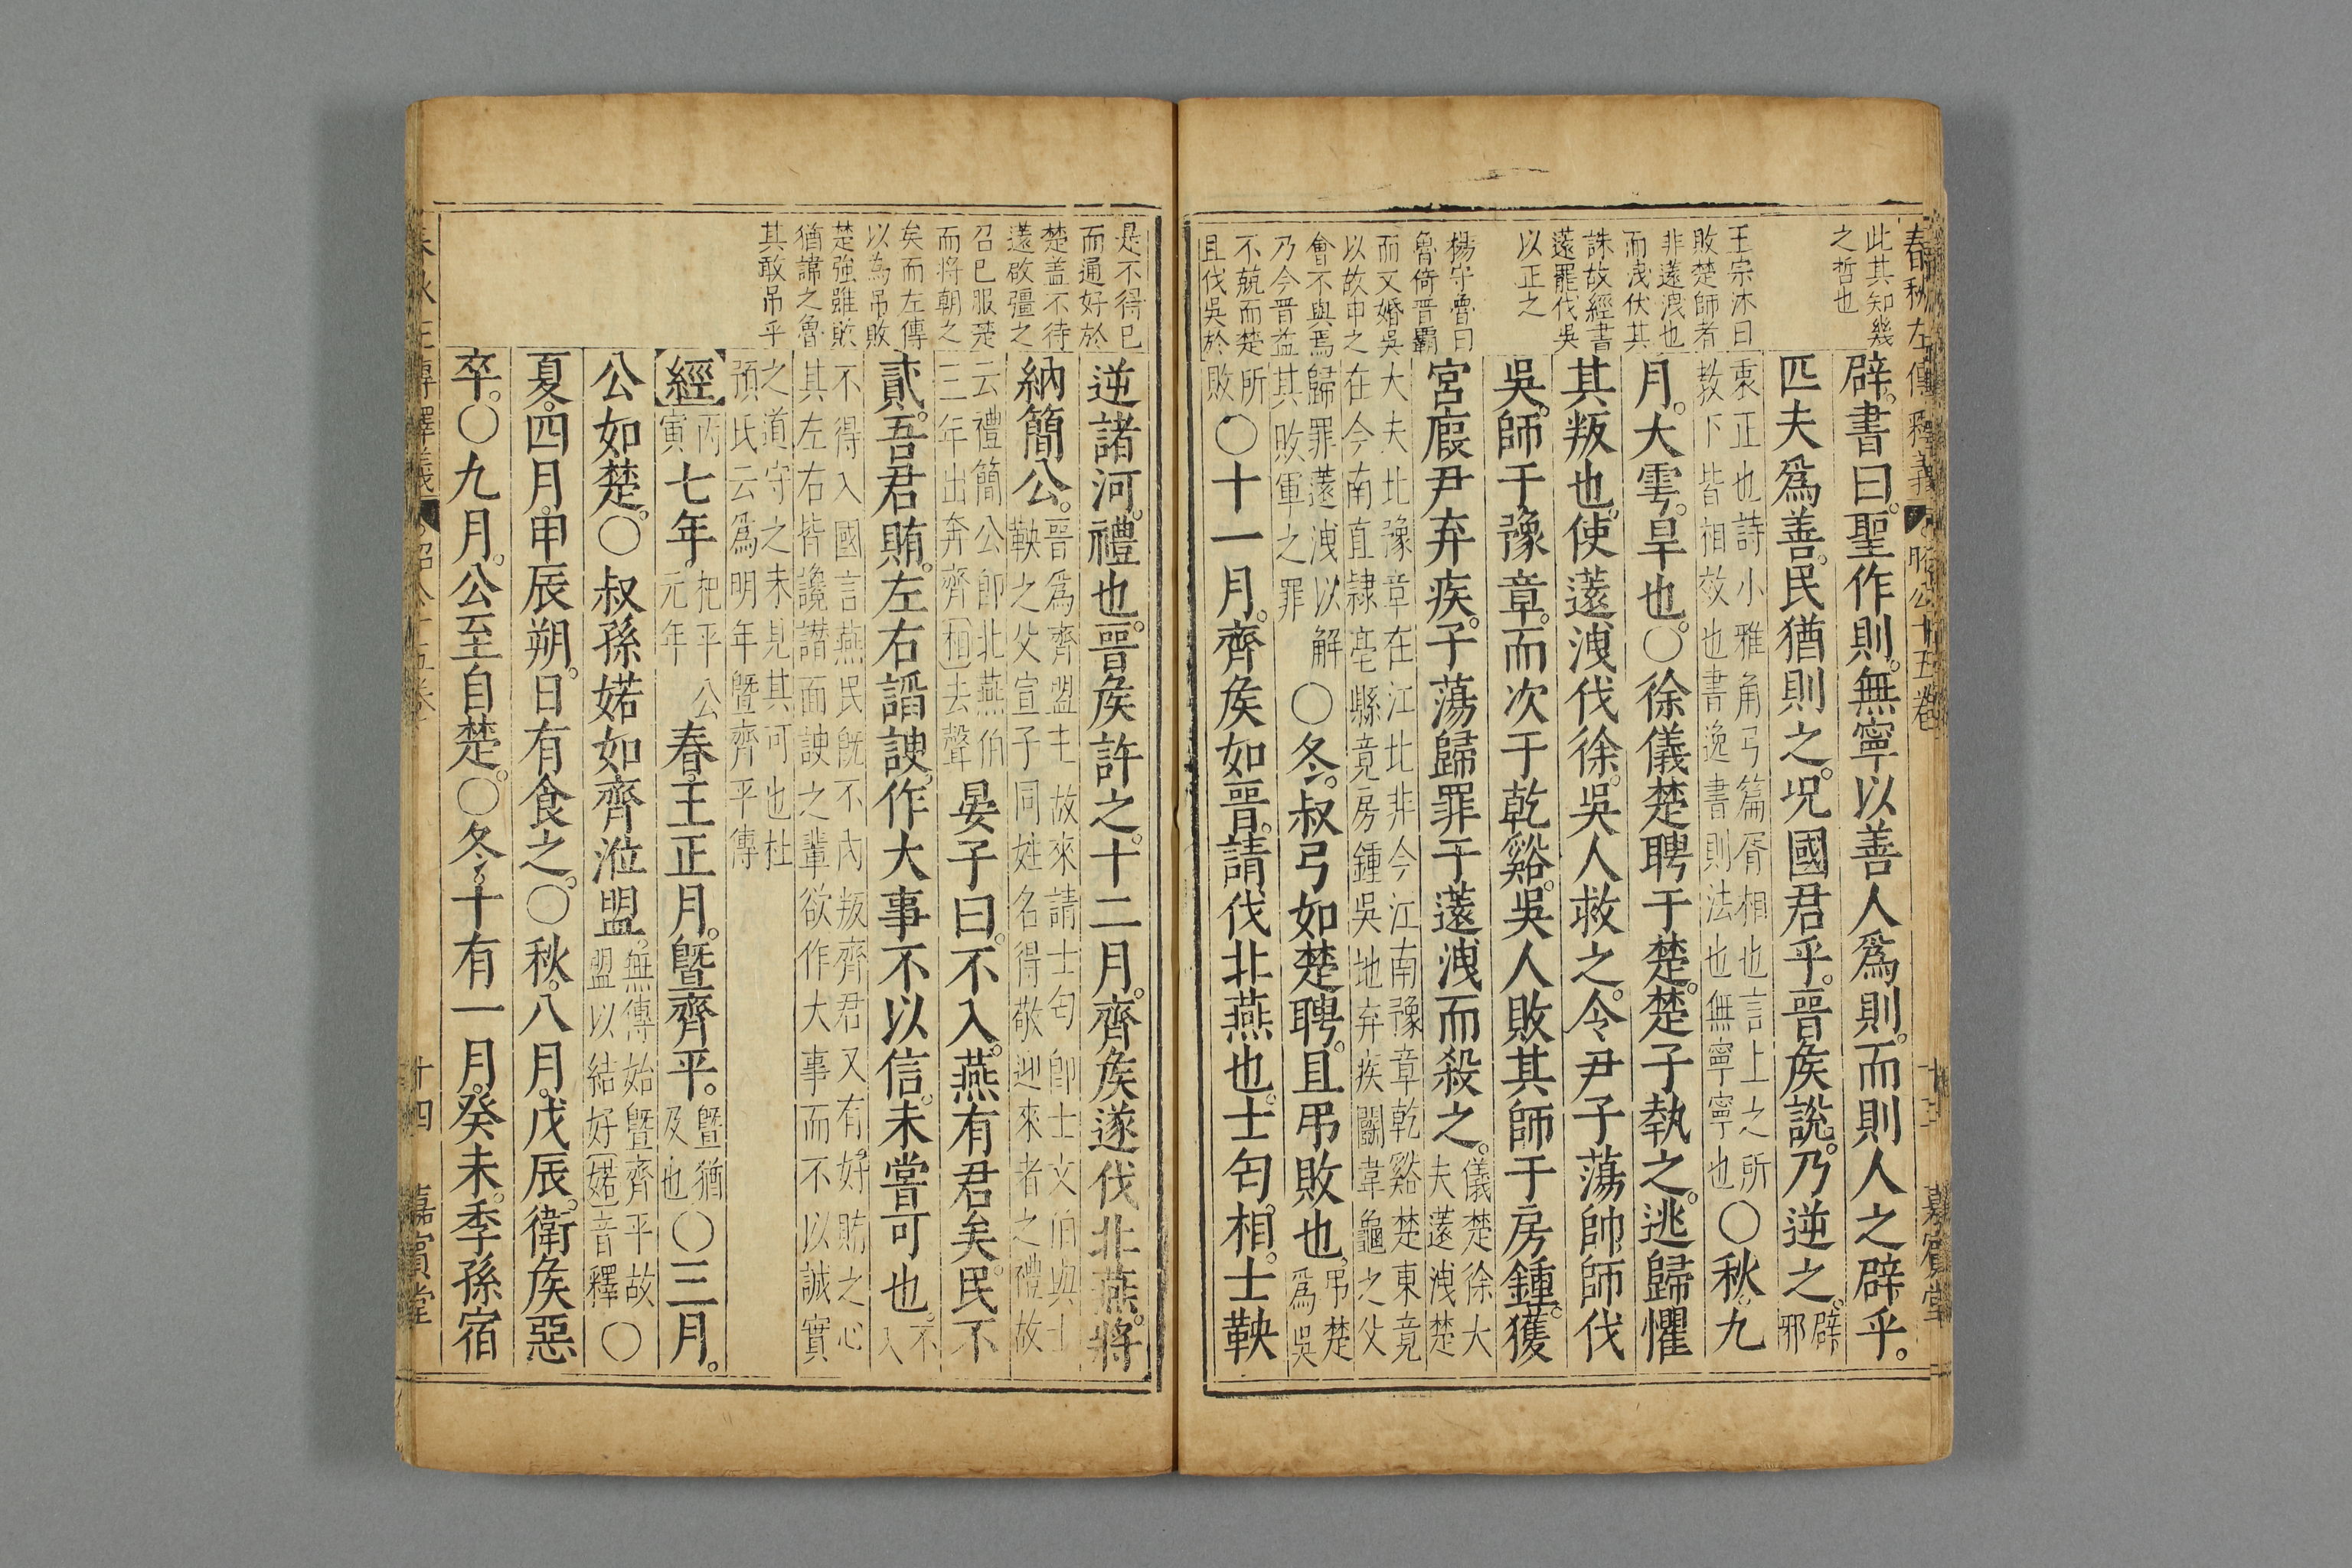 春秋左傳釋義 昭公十五卷 十三 嘉賓堂
此其知幾
之哲也
王宗沐曰
敗楚師者
非薳洩也
而洩伏其
誅故經書
薳罷伐吳
以正之
楊守魯曰
魯倚晉霸
而又婚吳
以故申之
會不與焉
乃今晉益
不競而楚
且伐吳於
辟書曰聖作則無寧以善人爲則而則人之辟乎
匹夫爲善民猶則之况國君乎晉侯說乃逆之辟邪
衷正也詩小雅角弓篇胥相也言上之所
教下皆相效也書逸書則法也無寧寧也〇秋九
月大雩旱也〇徐儀楚聘于楚楚子執之逃歸懼
其叛也使薳洩伐徐吳人救之令尹子蕩帥師伐
吳師于豫章而次于乾谿吳人敗其師于房鍾獲
宮廄尹弃疾子蕩歸罪于薳洩而殺之儀楚徐大
夫薳洩楚
大夫北豫章在江北非今江南豫章乾谿楚東竟
在今南直隷亳縣竟房鍾吳地弃疾鬭韋龜之父
歸罪薳洩以解
其敗軍之罪〇冬叔弓如楚聘且弔敗也弔楚
爲吳
所
敗〇十一月齊侯如晉請伐北燕也士匄相士鞅
是不得已
而通好於
楚盖不待
薳啟彊之
召已服楚
而將朝之
矣而左傳
以為弔敗
楚強雖敗
猶諱之魯
其敢吊乎
逆諸河禮也晉侯許之十二月齊侯遂伐北燕將
納簡公晉爲齊盟主故來請士匄卽士文伯與士
鞅之父宣子同姓名得敬迎來者之禮故
云禮簡公卽北燕伯
三年出奔齊相去聲晏子曰不入燕有君矣民不
貳吾君賄左右諂諛作大事不以信未嘗可也不
入
不得入國言燕民旣不內叛齊君又有好賄之心
其左右皆讒譖面諛之輩欲作大事而不以誠實
之道守之未見其可也杜
預氏云爲明年曁齊平傳
經丙
寅七年杞平公
元年春王正月曁齊平曁猶
及也〇三月
公如楚〇叔孫婼如齊涖盟無傳始曁齊平故
盟以結好婼音釋〇
夏四月甲辰朔日有食之〇秋八月戊辰衛侯惡
卒〇九月公至自楚〇冬十有一月癸未季孫宿
十四 嘉賓堂